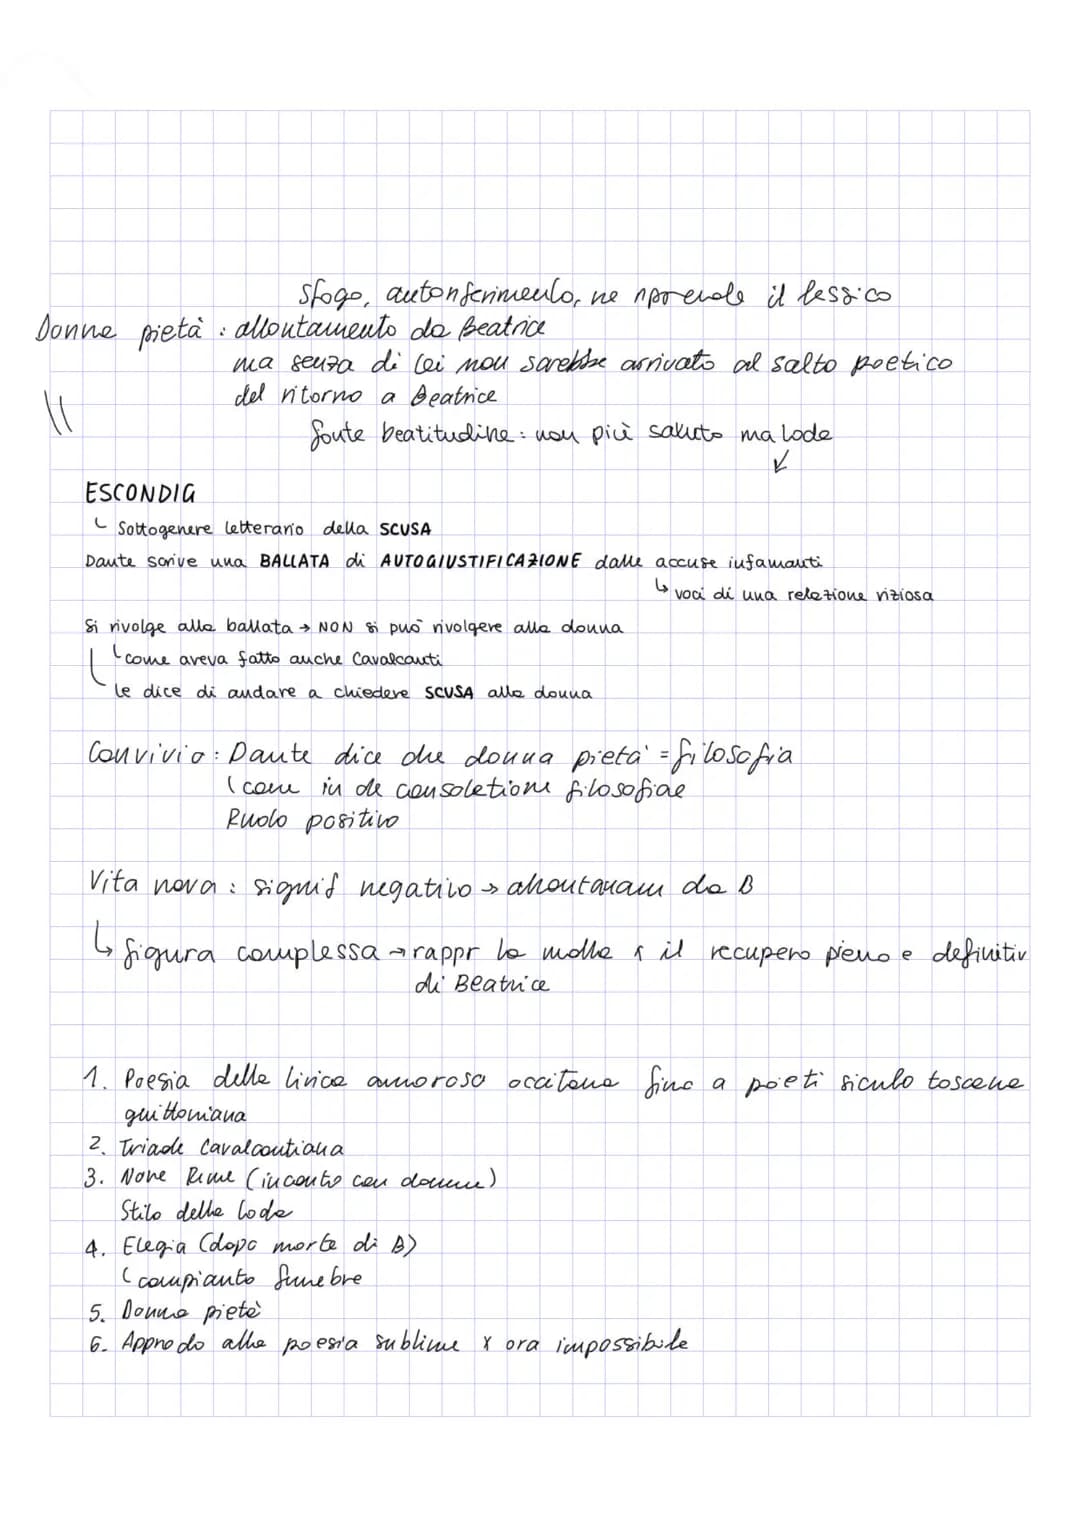 Sfogo, autoriferimento, ne riprende il lessico
Donna pietà : allontamento da Beatrice
ma senza di lei non sarebbe arrivato al salto poetico
del ritorno a Beatrice
fonte beatitudine : non più saluto ma lode
ESCONDIG
Sottogenere letterario della SCUSA
Dante scrive una BALLATA di AUTOGIUSTIFICAZIONE dalle accuse infamanti
voci di una relazione viziosa
Si rivolge alla ballata → NON si può rivolgere alla donna
come aveva fatto anche Cavalcanti
le dice di andare a chiedere SCUSA alla donna
Convivio : Dante dice che donna pietà = filosofia
come in de consolatione filosofiae
Ruolo positivo
Vita nova : signif negativo → allontanam da B
figura complessa → rappr la molla x il recupero pieno e definitiv
di Beatrice
1. Poesia della lirica amorosa occitana fino a poeti siculo toscana
guittoniana
2. Triade Cavalcantiana
3. Nove Rime (incontro con donne)
Stilo della loda
4. Elegia (dopo morte di B)
compianto funebre
5. Donna pietà
6. Approdo alla poesia sublime x ora impossibile